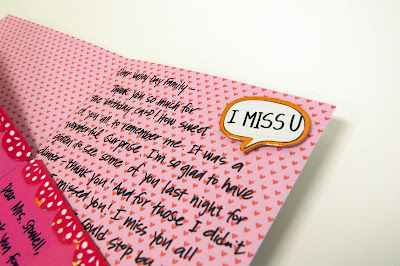 Dear Wong Fay Family –
Thank you so much for
the birthday card. How sweet
of you all to remember me. It was a
wonderful surprise. I'm so glad to have
gotten to see some of you last night for
dinner – thank you! And for those I didn't
misses you! I miss you all
could stop by
I MISS U
Dear Mrs. Sowell,
you for